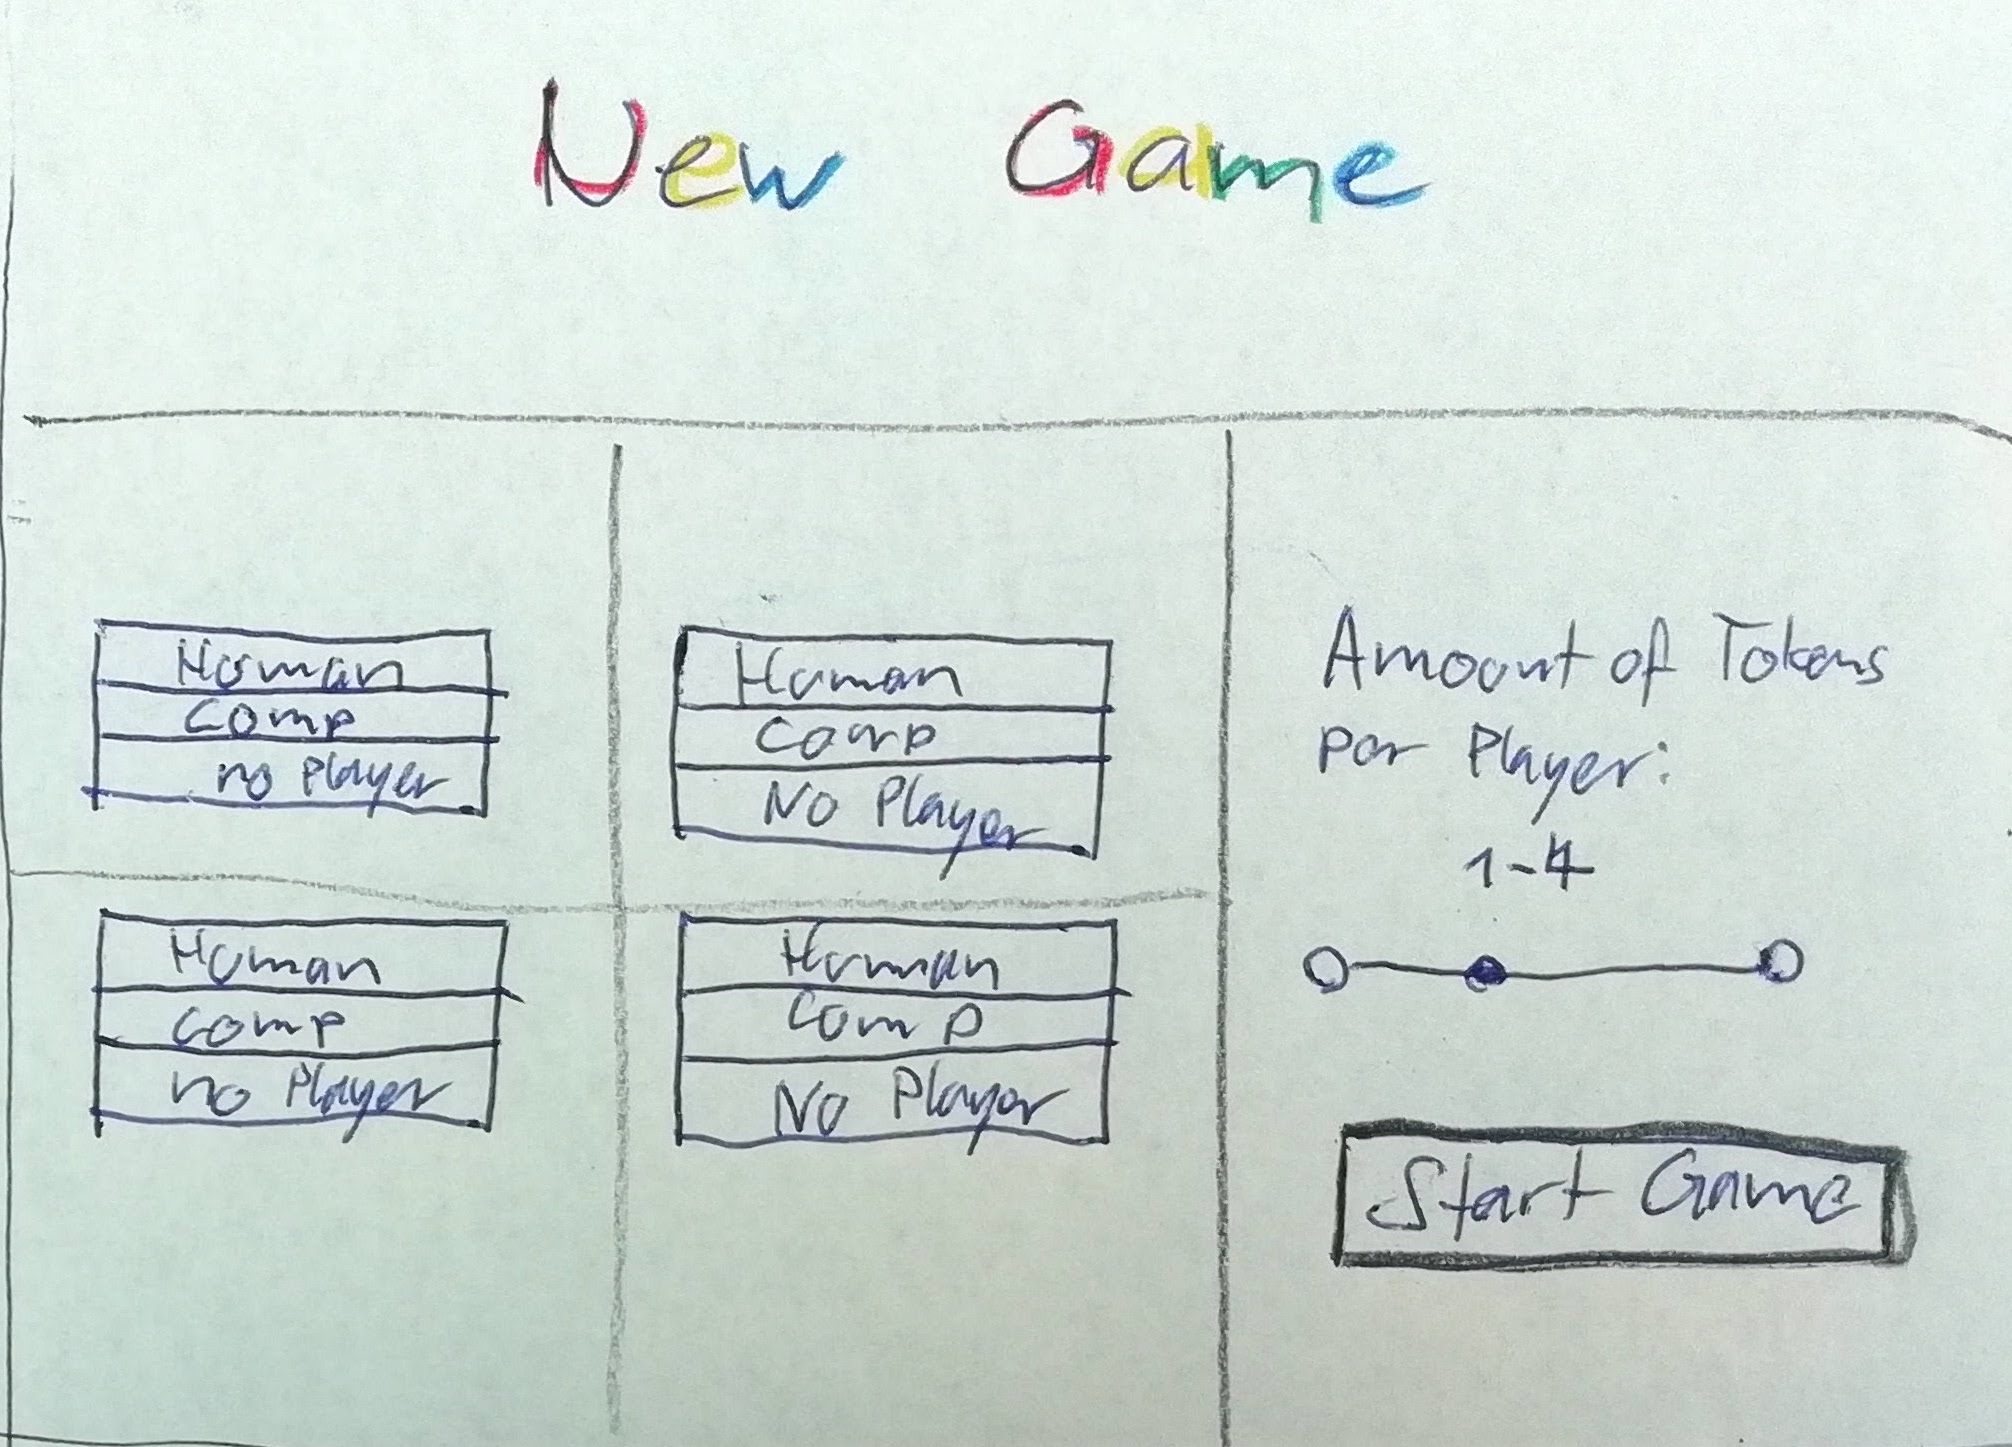 New Game
Human
Comp
no Player
Human
Comp
No Player
Human
Comp
no Player
Human
Comp
No Player
Amount of Tokens
per Player:
1-4
Start Game